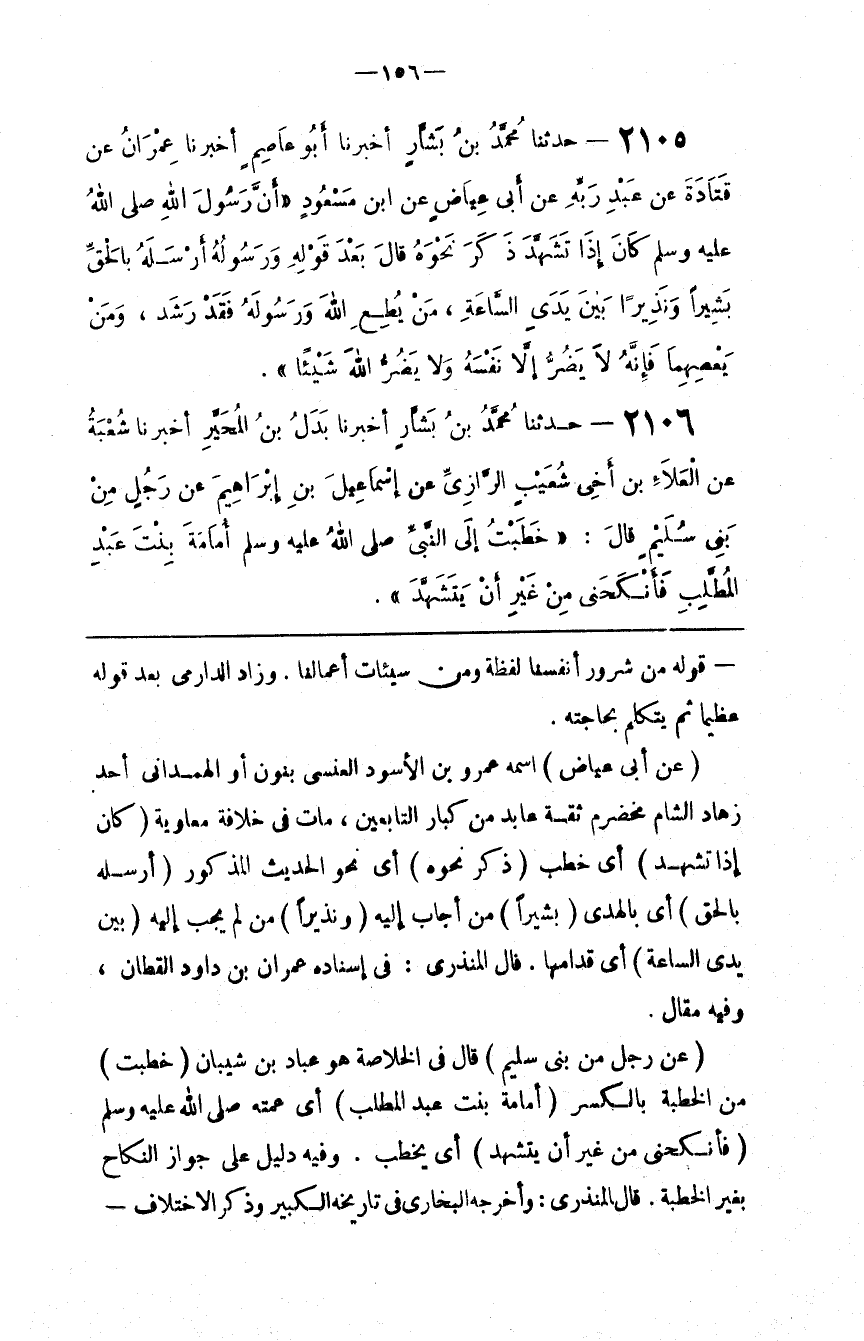 —١٥٦—
٢١٠٥ — حدثنا مُحمَّدُ بنُ بَشَّارٍ أخبرنا أَبُو عاَصِمٍ أخبرنا عِمْرَانُ عن
قَتَادَةَ عن عَبْدِ رَبِّهِ عن أَبى عِياَضٍ عن ابن مَسْعُودٍ «أَنَّ رَسُولَ اللهِ صلى اللهُ
عليه وسلم كَانَ إِذَا تَشَهَّدَ ذَكَرَ نَحْوَهُ قالَ بَعْدَ قَوْلِهِ وَرَسُولُهُ أَرْسَـلَهُ بالْحَقِّ
بَشِيراً وَنَذِيرًا بَيْنَ يَدَىِ السَّاعَةِ ، مَنْ يُطِـعِ اللهَ وَرَسُولَهُ فَقَدْ رَشَد ، وَمَنْ
يَعْصِهِمَا فَإِنَّهُ لاَ يَضُرُّ إلَّا نَفْسَهُ وَلا يَضُرُّ اللهَ شَيْئًا » .
٢١٠٦ — حـدثنا مُحمَّدُ بنُ بَشَّارٍ أخبرنا بَدَلُ بنُ المُحَبَّرِ أخبرنا شُعْبَةُ
عن الْعَلاَءِ بن أَخِى شُعَيْبٍ الرَّازِىِّ عن إسْمَاعِيلَ بنِ إبْرَاهِيمَ عن رَجُلٍ مِنْ
بَنِى سُـلَيْمٍ قالَ : « خَطَبْتُ إلَى النَّبىِّ صلى اللهُ عليه وسلم أُمَامَةَ بِنْتَ عَبْدِ
المُطَّلِبِ فَأَنْـكَحَنى مِنْ غَيْرِ أنْ يَتَشَهَّدَ » .
— قوله من شرور أنفسنا لفظة ومن سيئات أعمالنا . وزاد الدارمى بعد قوله
عظيما ثم يتكلم بحاجته .
( عن أبى عياض ) اسمه عمرو بن الأسود العنسى بنون أو الهمـدانى أحد
زهاد الشام مخضرم ثقـة عابد من كبار التابعين ، مات فى خلافة معاوية ( كان
إذا تشهـد ) أى خطب ( ذكر نحوه ) أى نحو الحديث المذكور ( أرسـله
بالحق ) أى بالهدى ( بشيراً ) من أجاب إليه ( ونذيراً ) من لم يجب إليه ( بين
يدى الساعة ) أى قدامها . قال المنذرى : فى إسناده عمران بن داود القطان ،
وفيه مقال .
( عن رجل من بنى سليم ) قال فى الخلاصة هو عباد بن شيبان ( خطبت )
من الخطبة بالـكسر ( أمامة بنت عبد المطلب ) أى عمته صلى الله عليه وسلم
( فأنـكحنى من غير أن يتشهد ) أى يخطب . وفيه دليل على جواز النكاح
بغير الخطبة . قال المنذرى : وأخرجه البخارى فى تاريخه الـكبير وذكر الاختلاف —